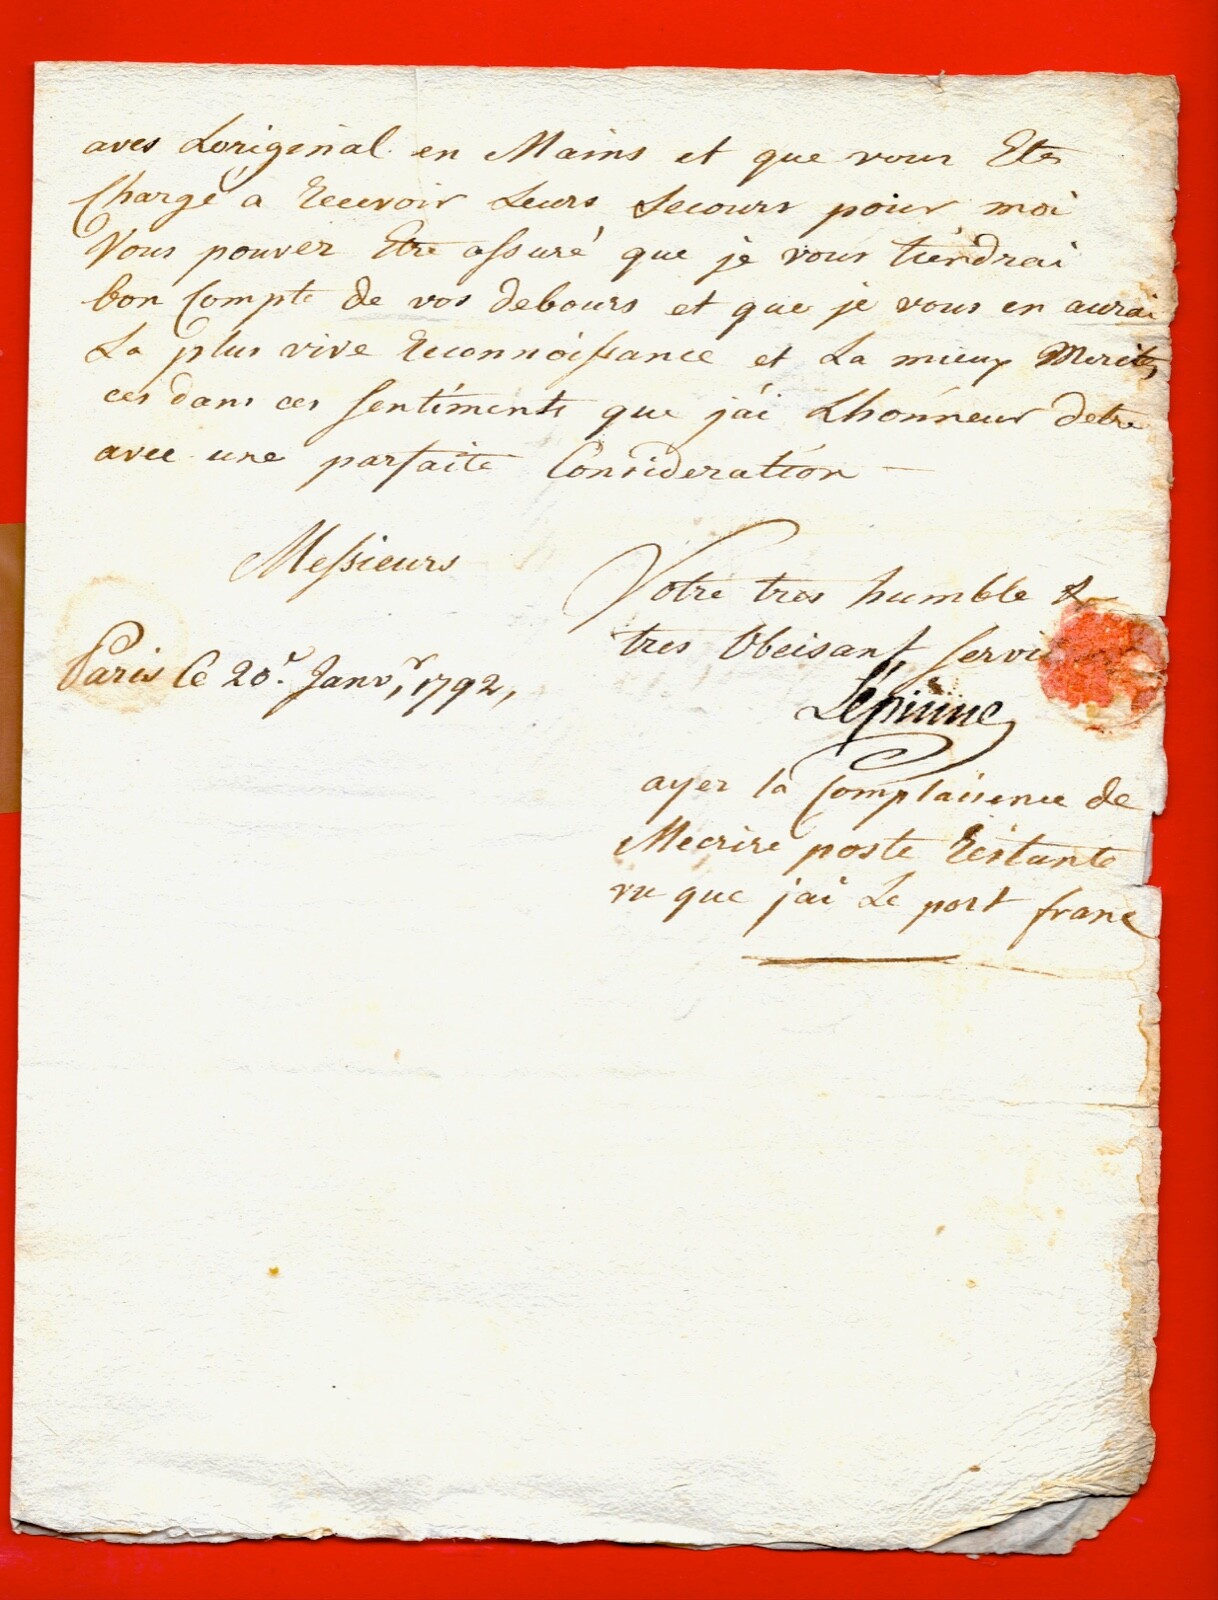 aves Lorigenal en Mains et que vous Etes
Chargé a recevoir Leurs Secours pour moi
Vous pouvez Etre assuré que je vous tiendrai
bon Compte de vos debours et que je vous en aurai
La plus vive reconnoissance et La mieux Merité,
ces dans ces sentiments que j'ai Lhonneur detre
avec une parfaite Consideration —
Messieurs
Votre tres humble &
tres Obeisant servi
Paris Ce 20.r Janv.r, 1792,
ayez la Complaisence de
Mecrire poste restante
vu que jai Le port franc